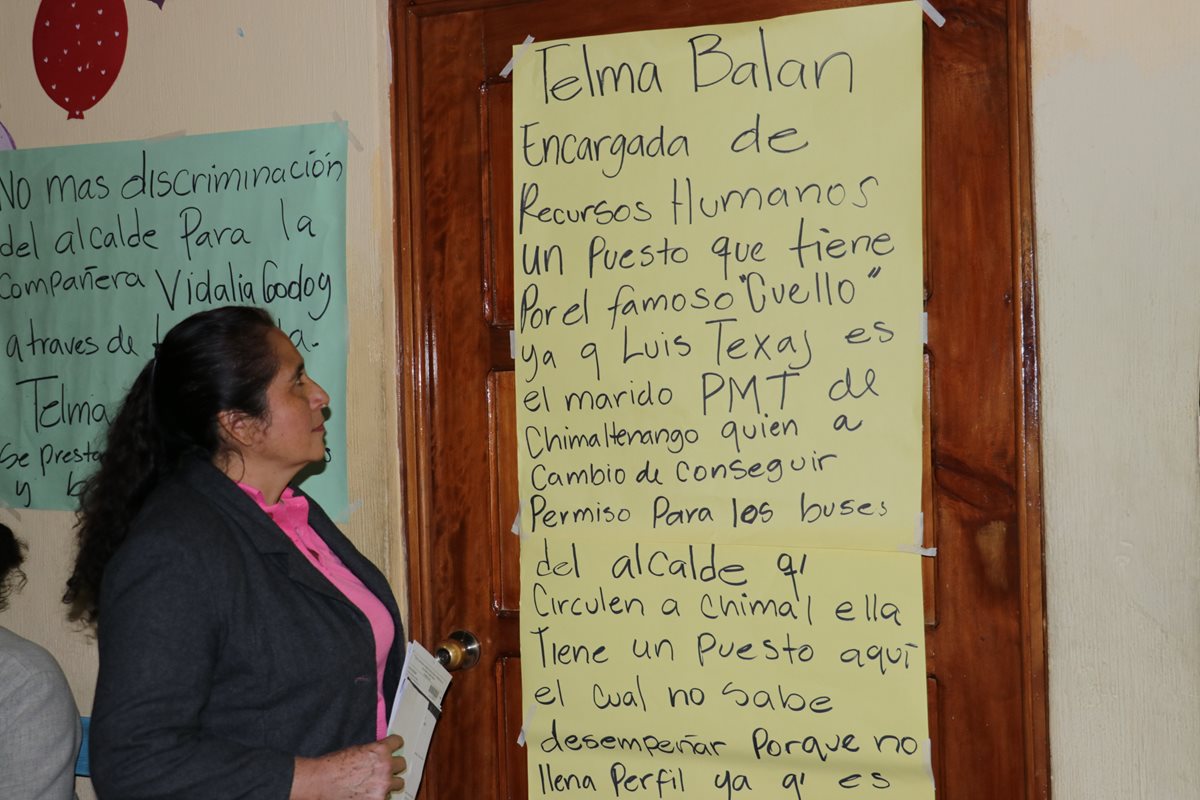 No mas discriminación
del alcalde Para la
Compañera Vidalia Godoy
atraves de
Telma
Se prest
y
Telma Balan
Encargada de
Recursos Humanos
un Puesto que tiene
Por el famoso "Cuello"
ya q Luis Texaj es
el marido PMT de
Chimaltenango quien a
Cambio de conseguir
Permiso Para los buses
del alcalde q'
Circulen a Chimal ella
Tiene un Puesto aquí
el cual no sabe
desempeñar Porque no
llena Perfil ya q' es